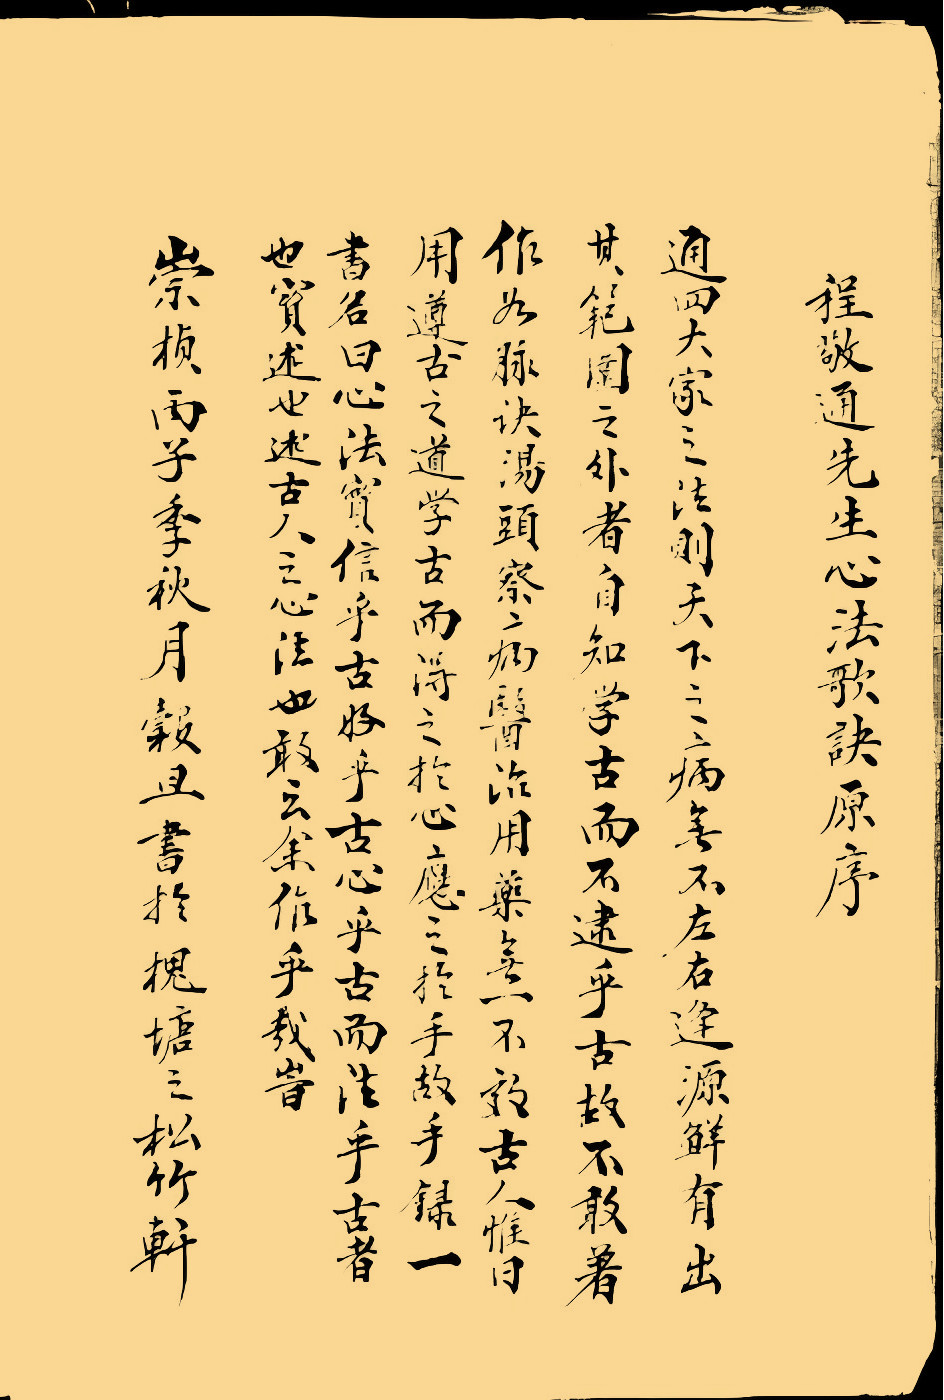 程敬通先生心法歌訣原序
通四大家之法則天下之病無不左右逢源鮮有出
其範圍之外者自知学古而不逮乎古故不敢著
作如脉诀湯頭察病醫治用藥無一不效古人惟日
用遵古之道学古而得之於心應之於手故手録一
書名曰心法實信乎古好乎古心乎古而法乎古者
也實述也述古人之心法也敢云余作乎哉峕
崇禎丙子季秋月穀旦書於槐塘之松竹軒